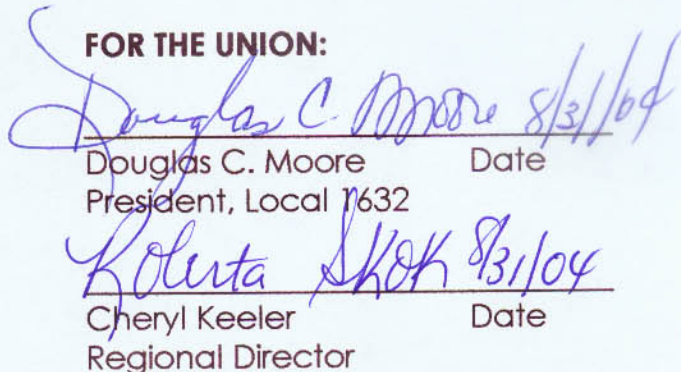 FOR THE UNION:
Douglas C. Moore 8/31/04
Douglas C. Moore Date
President, Local 1632
Roberta Skok 8/31/04
Cheryl Keeler Date
Regional Director